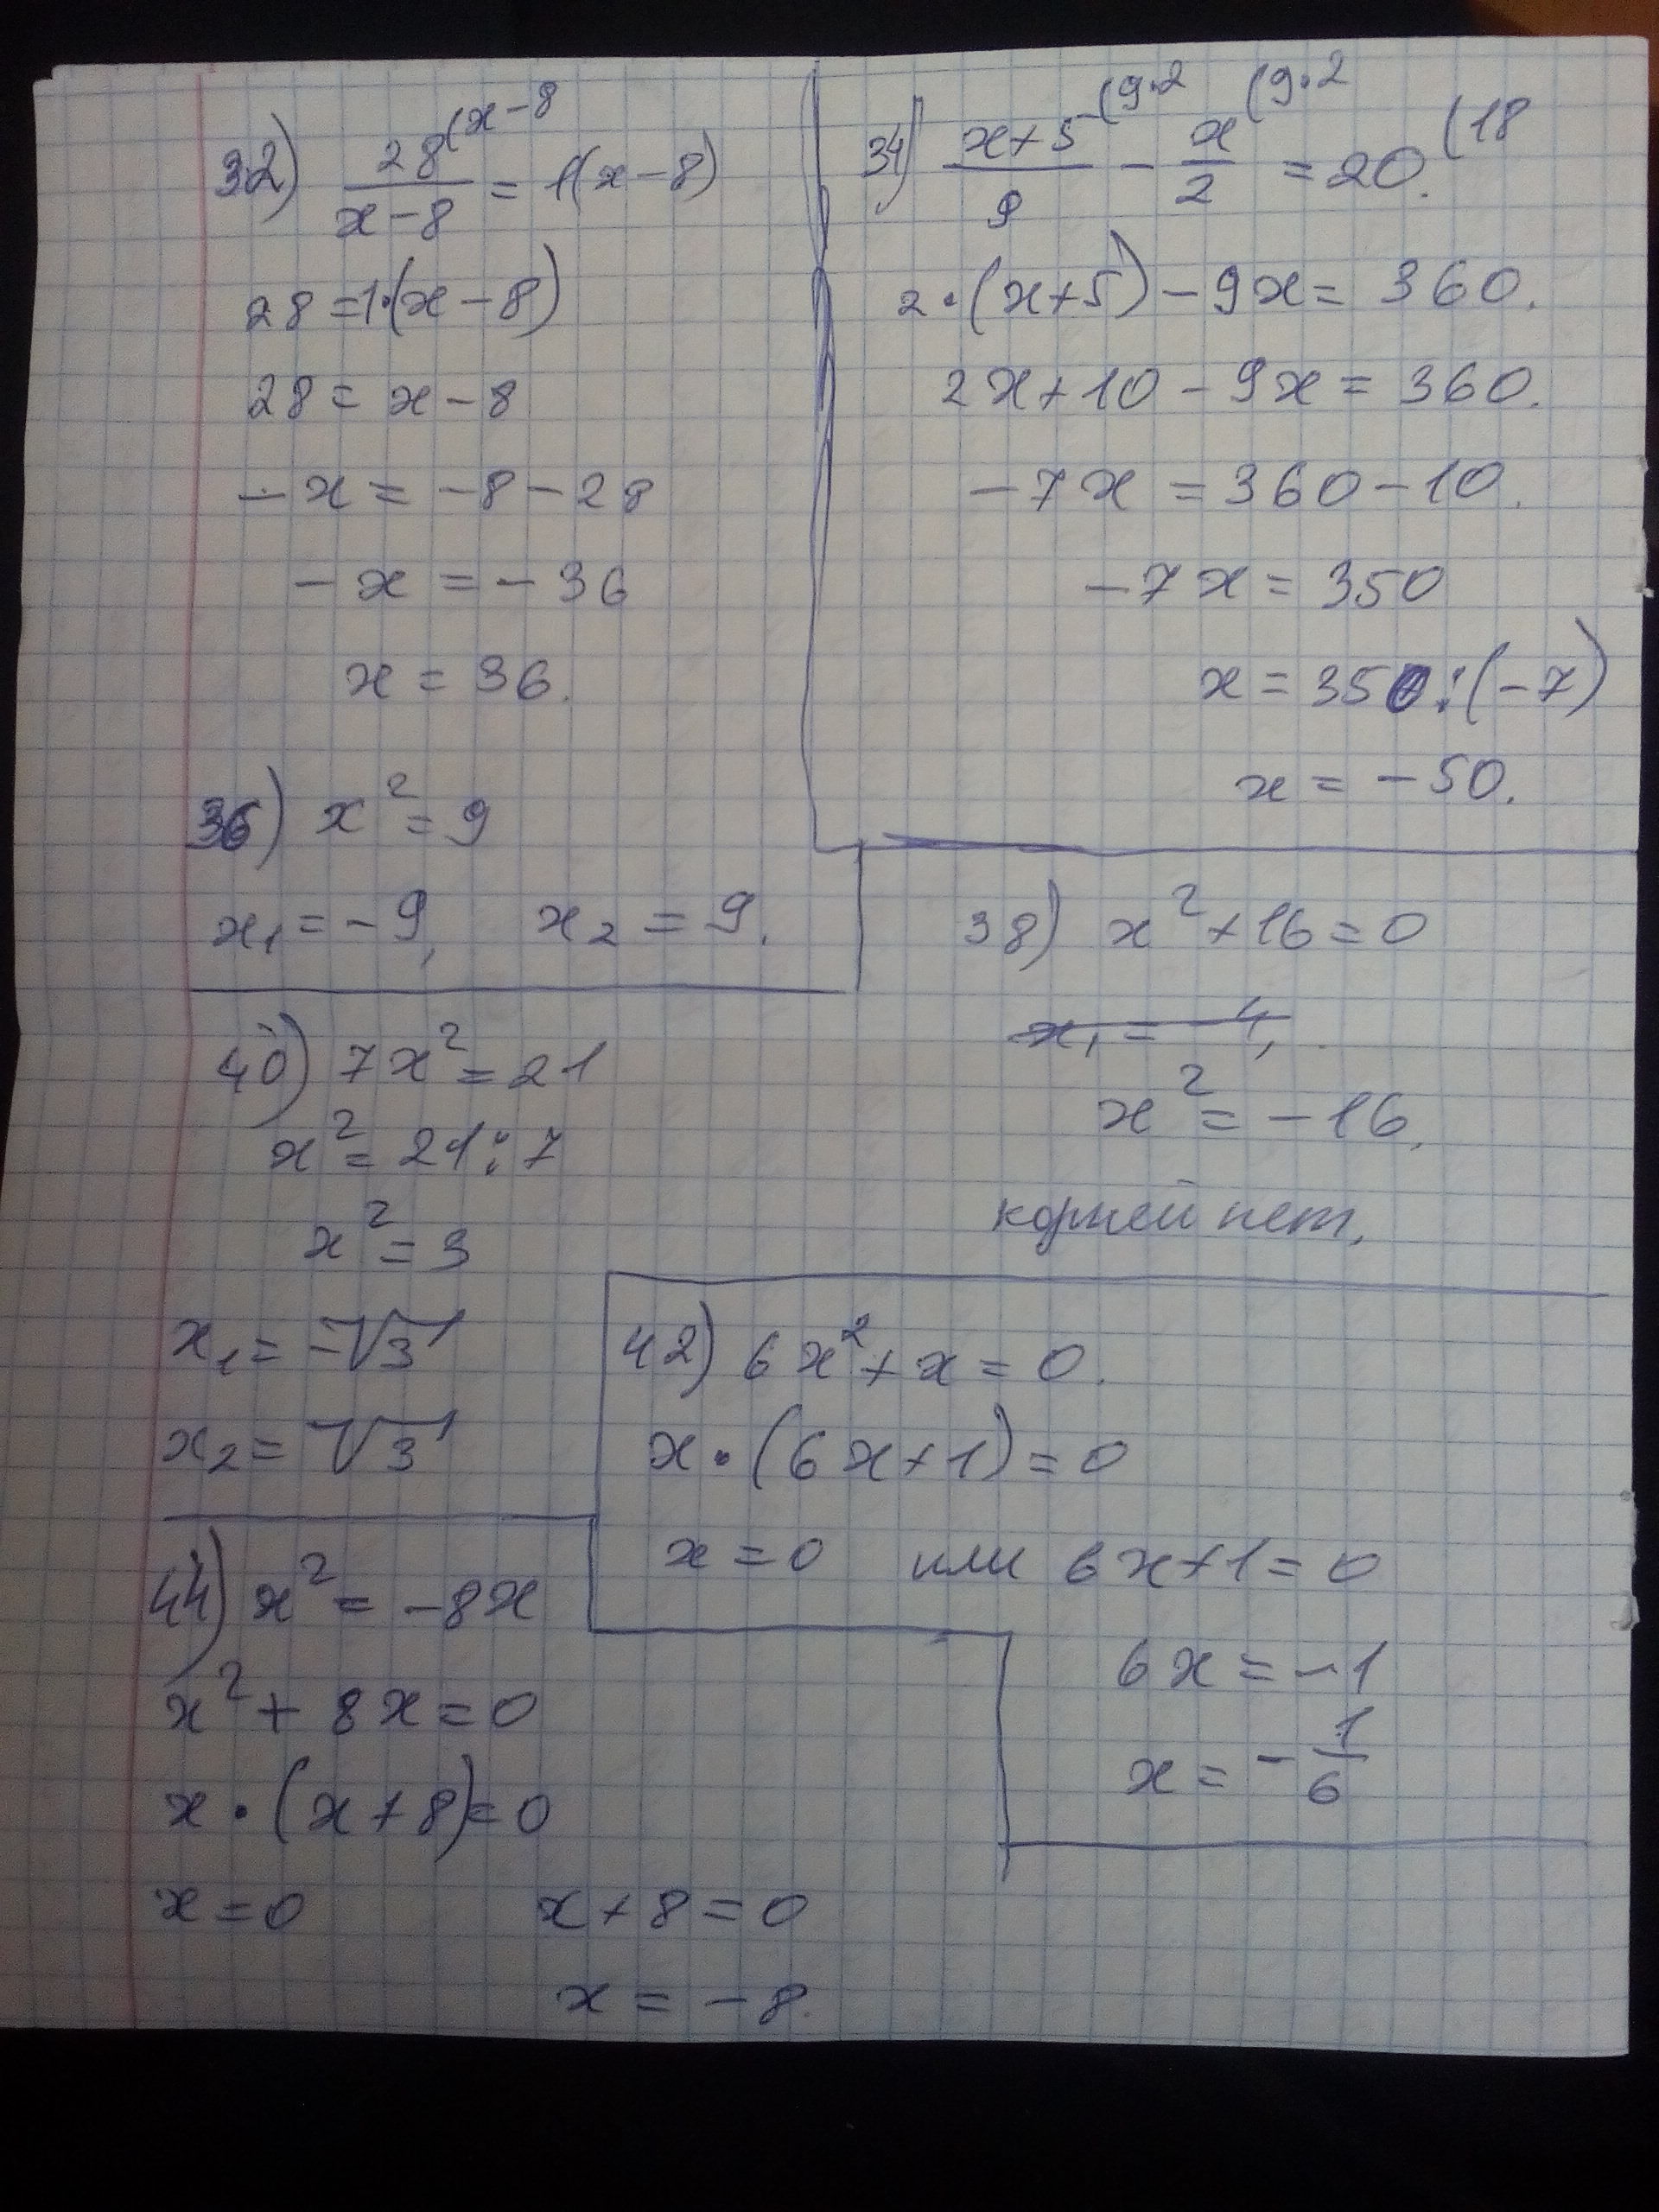 32) 28(x-8 / x-8 = 1(x-8)
28=1·(x-8)
28 = x-8
-x = -8-28
-x = -36
x = 36.
34) x+5(9·2 / 9 - x(9·2 / 2 = 20.(18
2·(x+5)-9x= 360.
2x+10-9x=360.
-7x =360-10.
-7x=350
x=350:(-7)
x = -50.
36) x²=9
x₁=-9, x₂=9.
38) x²+16=0
x₁=-4,
x²=-16,
корней нет.
40) 7x²=21
x²=21:7
x²=3
x₁=-√3
x₂=√3
42) 6x²+x=0.
x·(6x+1)=0
x=0 или 6x+1=0
6x=-1
x=-1/6
44) x²=-8x
x²+8x=0
x·(x+8)=0
x=0 x+8=0
x=-8.